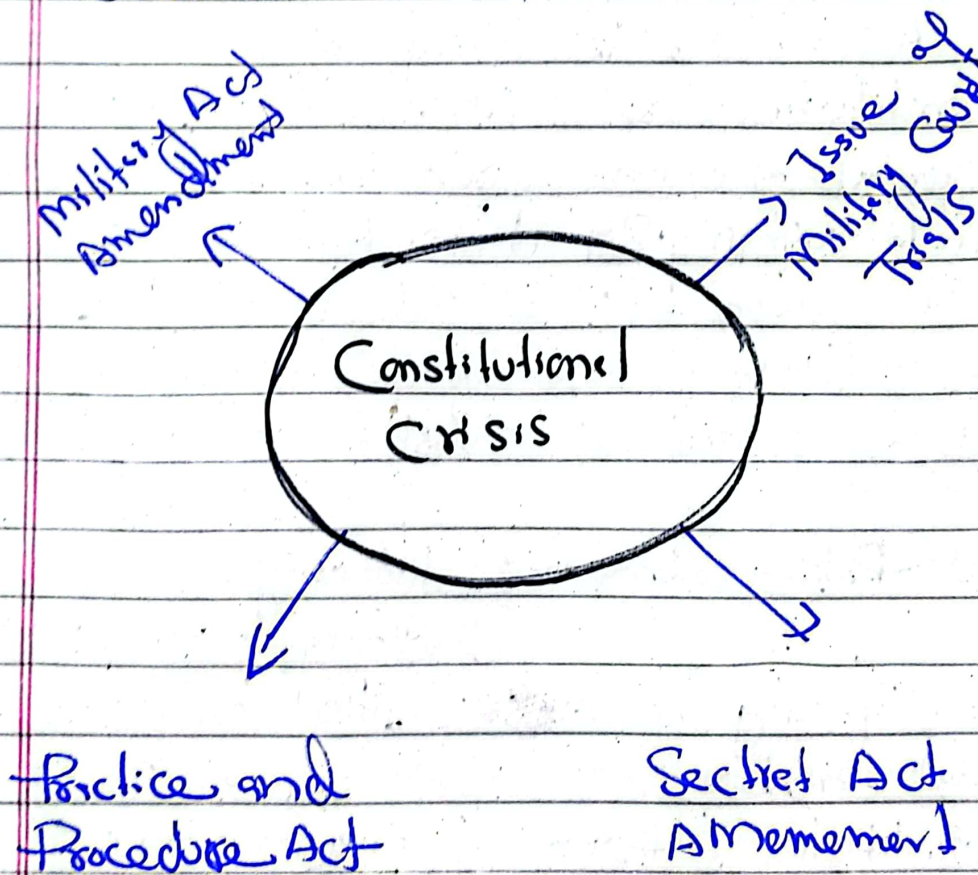 Military Act
Amendment
Issue of
Military Court
Trials
Constitutionel
Crisis
Prictice and
Procedure Act
Sectret Act
AMememert